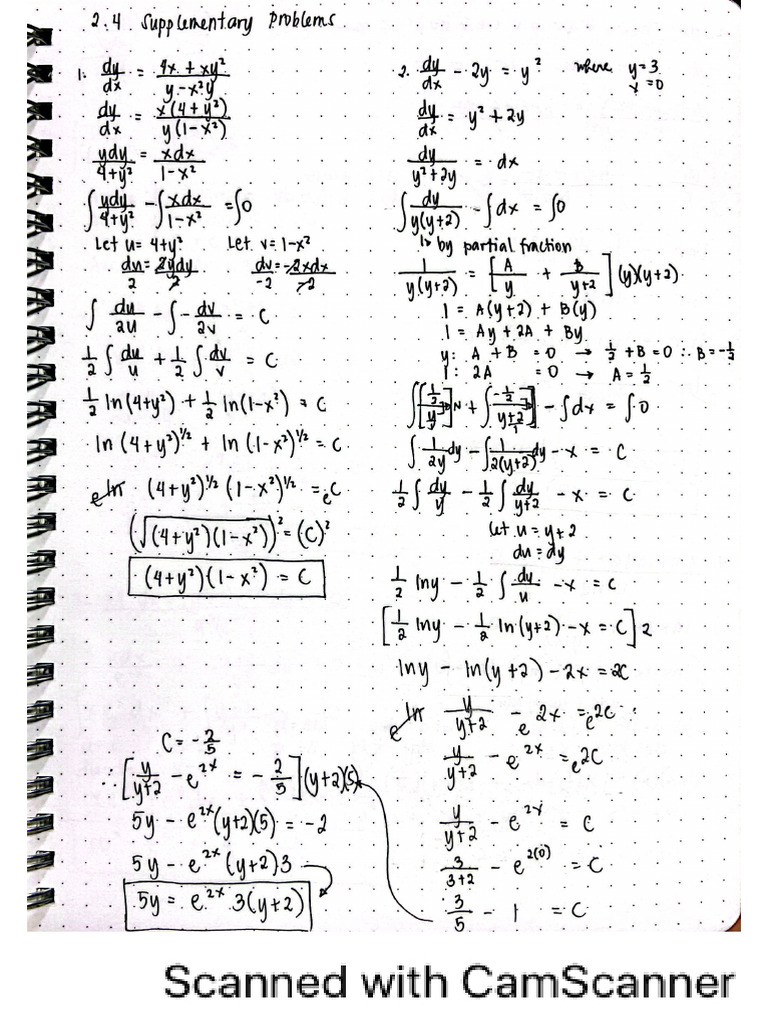 2.4 Supplementary Problems
1. dy/dx = 4x + xy² / y - x²y
dy/dx = x(4+y²) / y(1-x²)
ydy/4+y² = xdx/1-x²
∫ ydy/4+y² - ∫ xdx/1-x² = ∫0
Let u = 4+y² Let v = 1-x²
du/2 = 2ydy/2 dv/-2 = -2xdx/-2
∫ du/2u - ∫ - dv/2v = C
1/2 ∫ du/u + 1/2 ∫ dv/v = C
1/2 ln(4+y²) + 1/2 ln(1-x²) = C
ln (4+y²)^1/2 + ln (1-x²)^1/2 = C
e^ln (4+y²)^1/2 (1-x²)^1/2 = e^C
(√(4+y²)(1-x²))² = (C)²
(4+y²)(1-x²) = C
2. dy/dx - 2y = y² where y=3
x=0
dy/dx = y² + 2y
dy/y²+2y = dx
∫ dy/y(y+2) - ∫dx = ∫0
↳ by partial fraction
1/y(y+2) = [A/y + B/y+2] (y)(y+2)
1 = A(y+2) + B(y)
1 = Ay + 2A + By
y: A + B = 0 → 1/2 + B = 0 ∴ B = -1/2
1: 2A = 0 → A = 1/2
∫[1/2/y] + ∫[-1/2/y+2] - ∫dx = ∫0
∫ 1/2y dy - ∫ 1/2(y+2) dy - x = C
1/2 ∫ dy/y - 1/2 ∫ dy/y+2 - x = C
let u = y+2
du = dy
1/2 lny - 1/2 ∫ du/u - x = C
[1/2 lny - 1/2 ln(y+2) - x = C] 2
lny - ln(y+2) - 2x = 2C
e^ln y/y+2 - e^2x = e^2C
y/y+2 - e^2x = e^2C
y/y+2 - e^2x = C
3/3+2 - e^2(0) = C
3/5 - 1 = C
C = -2/5
∴ [y/y+2 - e^2x = -2/5] (y+2)(5)
5y - e^2x(y+2)(5) = -2
5y - e^2x (y+2)3
5y = e^2x 3(y+2)
Scanned with CamScanner